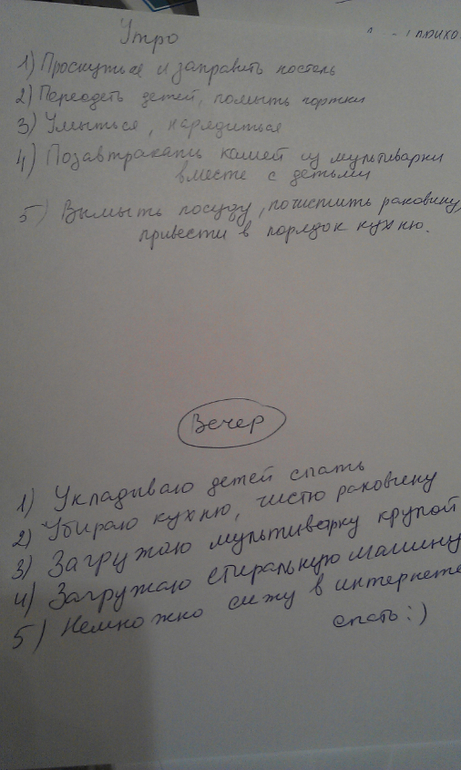 Утро
1) Проснуться и заправить постель
2) Переодеть детей, помыть горшки
3) Умыться, нарядиться
4) Позавтракать кашей из мультиварки
вместе с детьми
5) Вымыть посуду, почистить раковину,
привести в порядок кухню.
Вечер
1) Укладываю детей спать
2) Убираю кухню, чистю раковину
3) Загружаю мультиварку крупой
4) Загружаю стиральную машину
5) Немножко сижу в интернете
спать:)